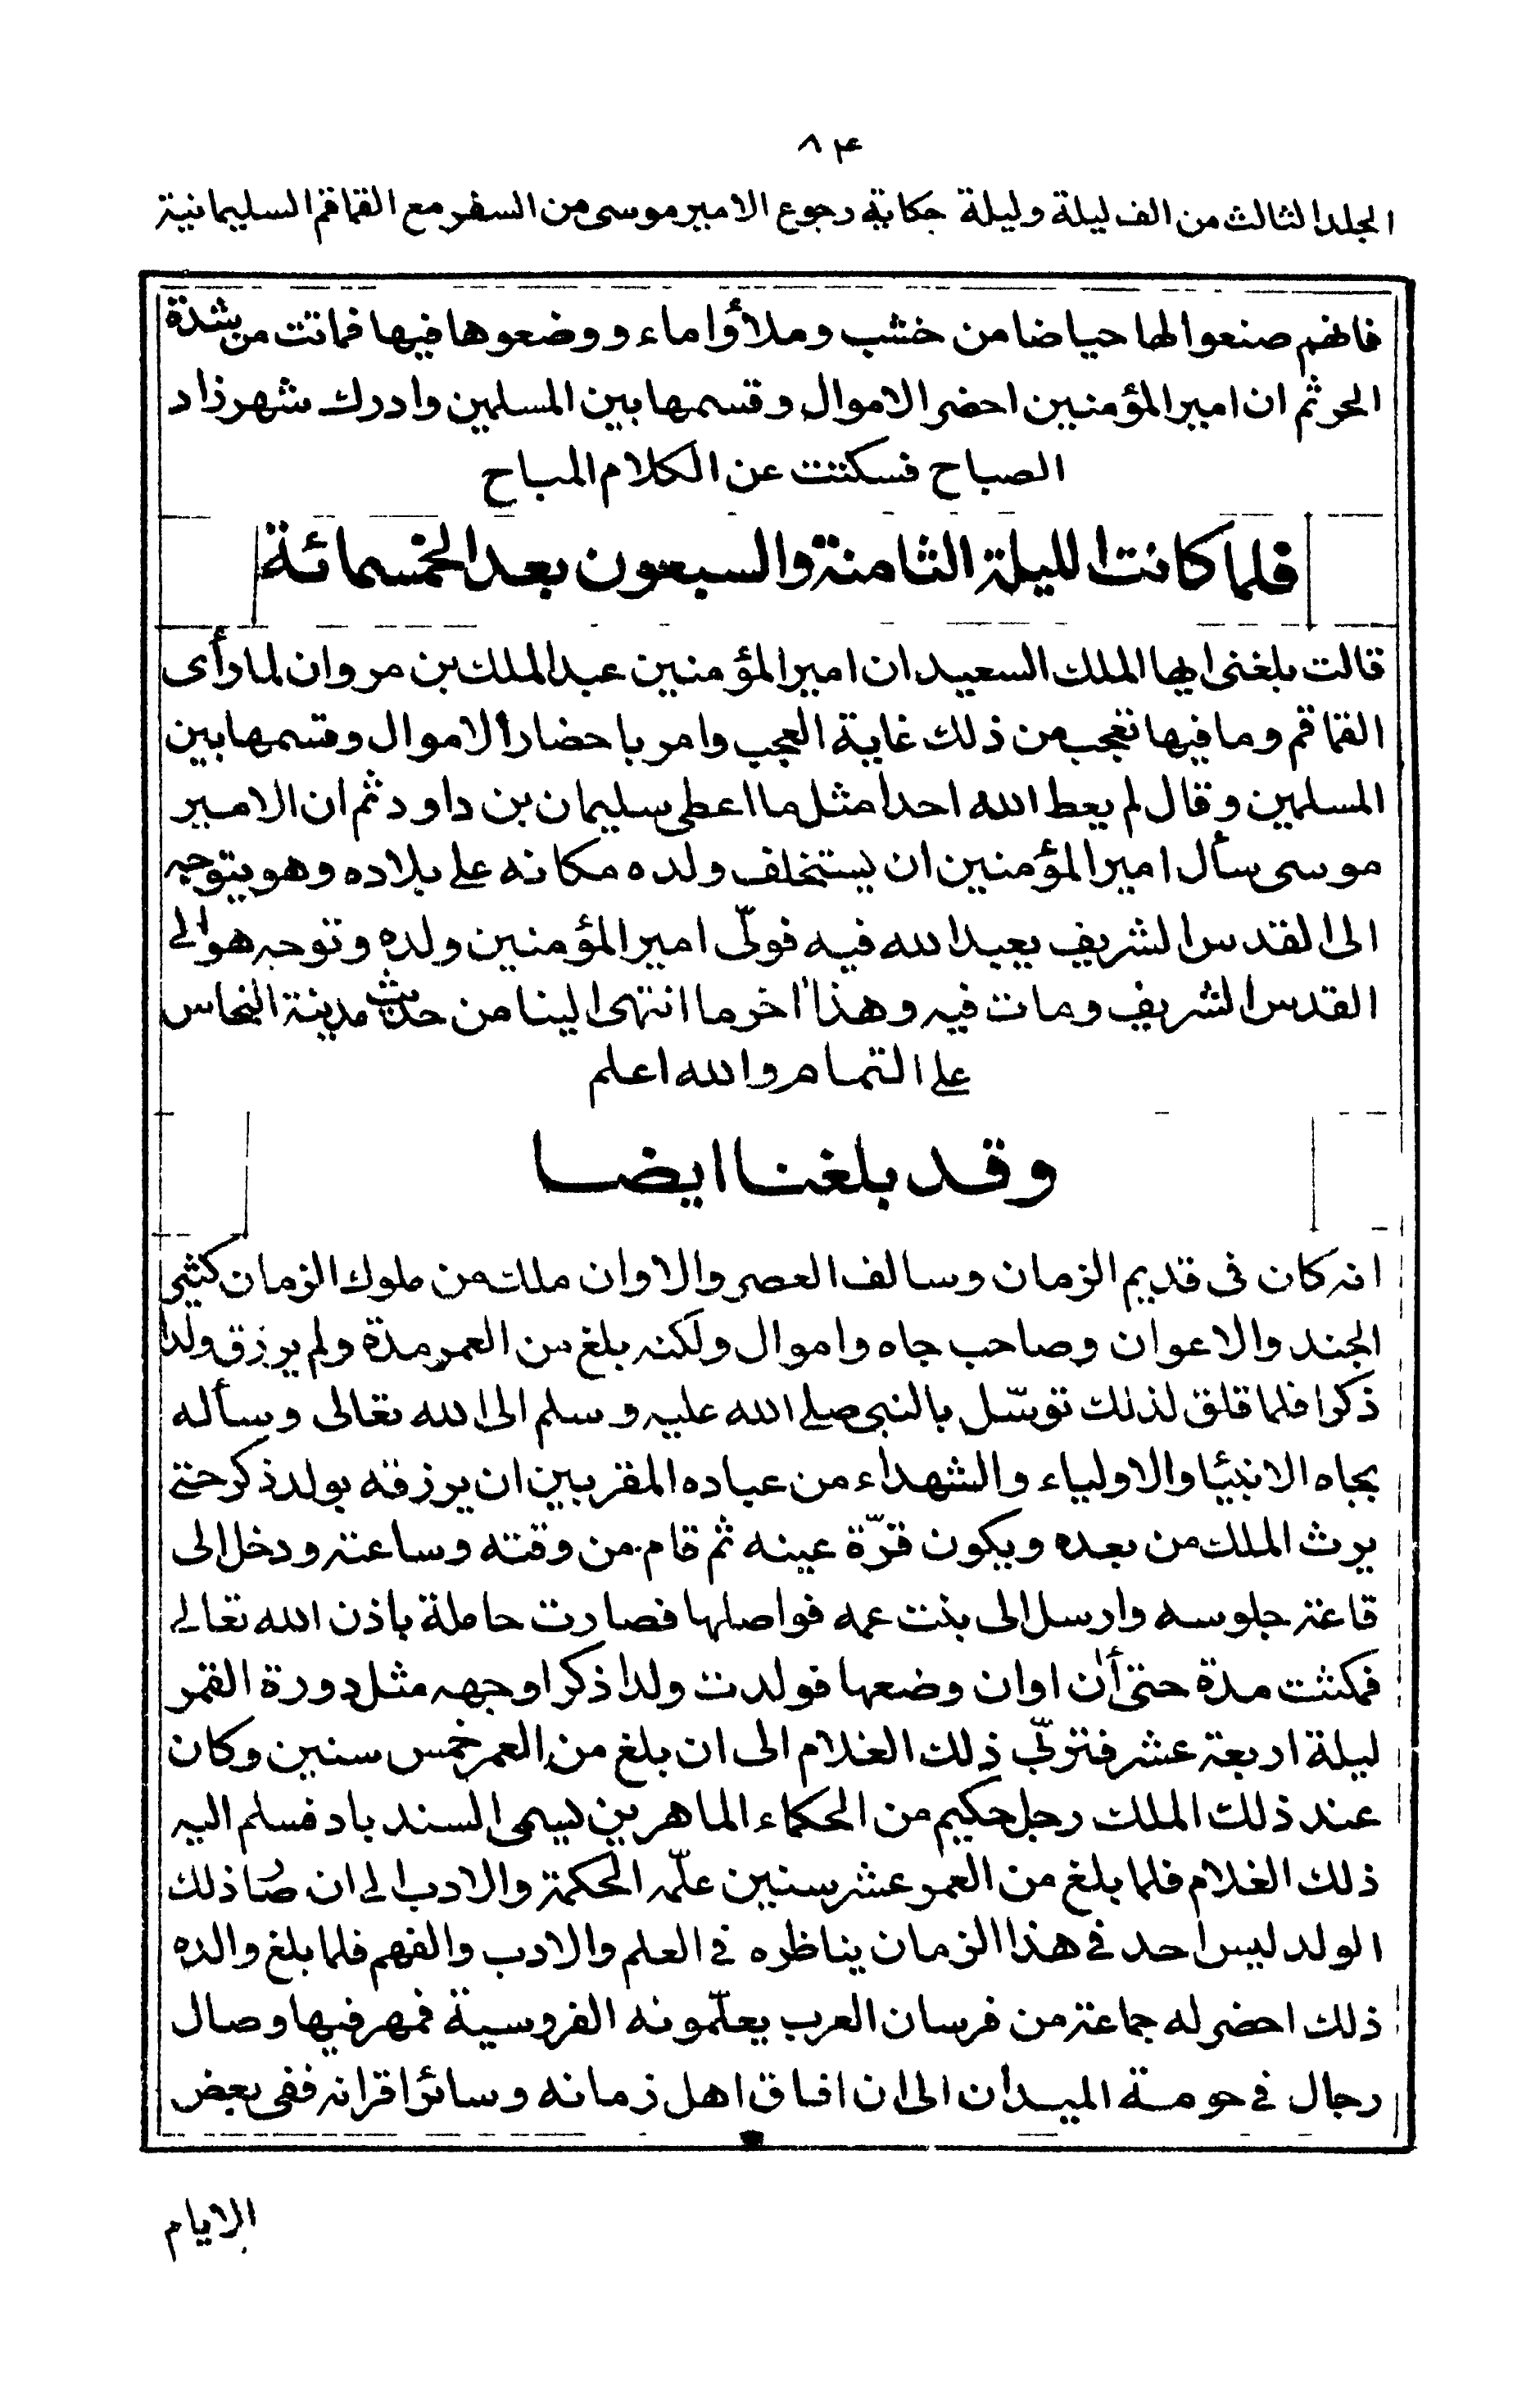 ۸۴
المجلد الثالث من الف ليلة وليلة حكاية رجوع الامير موسى من السفر مع القماقم السليمانية
فانهم صنعوا لها حياضا من خشب وملأوا ماء ووضعوها فيها فماتت من شدة
الحر ثم ان امير المؤمنين احضر الاموال وقسمها بين المسلمين وادرك شهرزاد
الصباح فسكتت عن الكلام المباح
فلما كانت الليلة الثامنة والسبعون بعد الخمسمائة
قالت بلغنى ايها الملك السعيد ان امير المؤمنين عبد الملك بن مروان لما رأى
القماقم وما فيها تعجب من ذلك غاية العجب وامر باحضار الاموال وقسمها بين
المسلمين وقال لم يعط الله احدا مثل ما اعطى سليمان بن داود ثم ان الامير
موسى سأل امير المؤمنين ان يستخلف ولده مكانه على بلاده وهو يتوجه
الى القدس الشريف يعبد الله فيه فولّى امير المؤمنين ولده وتوجه هو الى
القدس الشريف ومات فيه وهذا اخر ما انتهى الينا من حديث مدينة النحاس
على التمام والله اعلم
وقد بلغنا ايضا
انه كان فى قديم الزمان وسالف العصر والاوان ملك من ملوك الزمان كثير
الجند والاعوان وصاحب جاه واموال ولكنه بلغ من العمر مدة ولم يرزق ولدا
ذكرا فلما قلق لذلك توسّل بالنبى صلى الله عليه وسلم الى الله تعالى وسأله
بجاه الانبيا والاولياء والشهداء من عباده المقربين ان يرزقه بولد ذكر حتى
يرث الملك من بعده ويكون قرّة عينه ثم قام من وقته وساعته ودخل الى
قاعة جلوسه وارسل الى بنت عمه فواصلها فصارت حاملة باذن الله تعالى
فمكثت مدة حتى أن اوان وضعها فولدت ولدا ذكرا وجهه مثل دورة القمر
ليلة اربعة عشر فتربّى ذلك الغلام الى ان بلغ من العمر خمس سنين وكان
عند ذلك الملك رجل حكيم من الحكماء الماهرين يسمى السندباد فسلم اليه
ذلك الغلام فلما بلغ من العمر عشر سنين علّمه الحكمة والادب الى ان صار ذلك
الولد ليس احد فى هذا الزمان يناظره فى العلم والادب والفهم فلما بلغ والده
ذلك احضر له جماعة من فرسان العرب يعلّمونه الفروسية فمهر فيها وصال
رجال فى حومة الميدان الى ان افاق اهل زمانه وسائر اقرانه ففى بعض
الايام